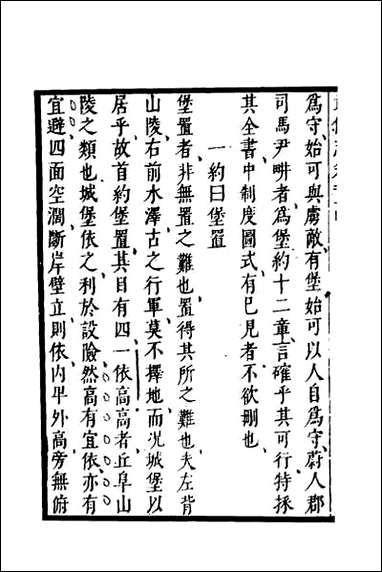 爲守始可與虜敵有堡始可以人自爲守蔚人郡
司馬尹畊者爲堡約十二章言確乎其可行特採
其全書中制度圖式有已見者不欲刪也
一約曰堡置
堡置者非無置之難也置得其所之難也夫左背
山陵右前水澤古之行軍莫不擇地而況城堡以
居乎故首約堡置其目有四一依高高者丘阜山
陵之類也城堡依之利於設險然高有宜依亦有
宜避四面空濶斷岸壁立則依内卑外高旁無俯